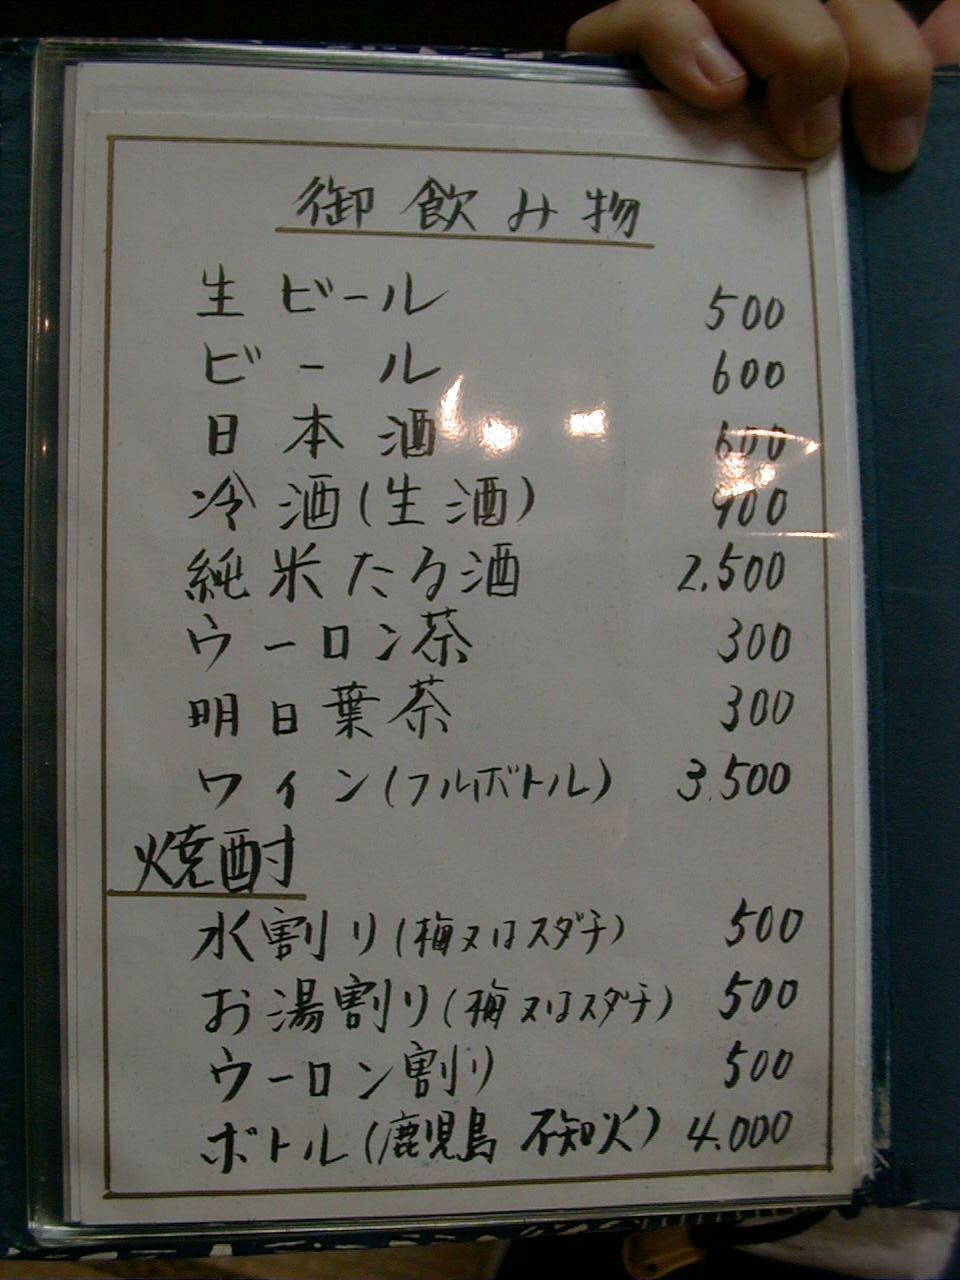 御飲み物
生ビール 500
ビール 600
日本酒 600
冷酒(生酒) 900
純米たる酒 2,500
ウーロン茶 300
明日葉茶 300
ワイン(フルボトル) 3,500
焼酎
水割り(梅又はスダチ) 500
お湯割り(梅又はスダチ) 500
ウーロン割り 500
ボトル(鹿児島 不知火) 4,000